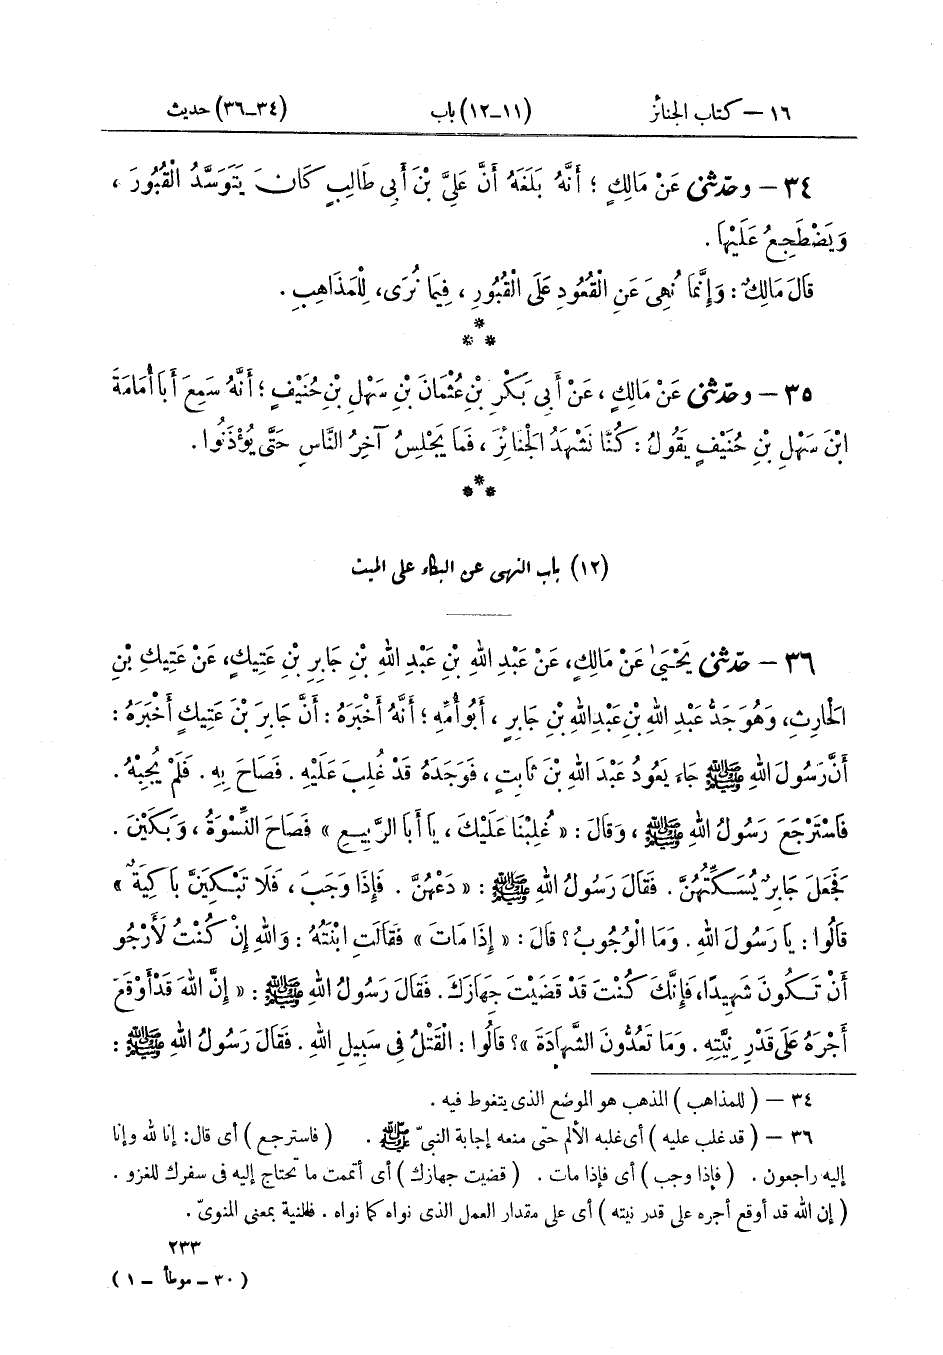 ١٦ – كتاب الجنائز (١١–١٢) باب (٣٤–٣٦) حديث
٣٤ – وحدّثنى عَنْ مَالِكٍ ؛ أَنَّهُ بَلَغَهُ أَنَّ عَلِيَّ بْنَ أَبِى طَالِبٍ كَانَ يَتَوَسَّدُ الْقُبُورَ ،
وَيَضْطَجِعُ عَلَيْهَا .
قَالَ مَالِكٌ : وَإِنَّمَا نُهِىَ عَنِ الْقُعُودِ عَلَى الْقُبُورِ ، فِيمَا نُرَى، لِلْمَذَاهِبِ .
*
* *
٣٥ – وحدّثنى عَنْ مَالِكٍ ، عَنْ أَبِى بَكْرِ بْنِ عُثْمَانَ بْنِ سَهْلِ بْنِ حُنَيْفٍ ؛ أَنَّهُ سَمِعَ أَبَا أُمَامَةَ
ابْنَ سَهْلِ بْنِ حُنَيْفٍ يَقُولُ : كُنَّا نَشْهَدُ الْجَنَائِزَ ، فَمَا يَجْلِسُ آخِرُ النَّاسِ حَتَّى يُؤْذَنُوا .
*
* *
(١٢) باب النهى عن البكاء على الميت
٣٦ – حدّثنى يَحْيَىٰ عَنْ مَالِكٍ، عَنْ عَبْدِ اللهِ بْنِ عَبْدِ اللهِ بْنِ جَابِرِ بْنِ عَتِيكٍ، عَنْ عَتِيكِ بْنِ
الْحَارِثِ، وَهُوَ جَدُّ عَبْدِ اللهِ بْنِ عَبْدِ اللهِ بْنِ جَابِرٍ ، أَبُو أُمِّهِ ؛ أَنَّهُ أَخْبَرَهُ : أَنَّ جَابِرَ بْنَ عَتِيكٍ أَخْبَرَهُ :
أَنَّ رَسُولَ اللهِ ﷺ جَاءَ يَعُودُ عَبْدَ اللهِ بْنَ ثَابِتٍ ، فَوَجَدَهُ قَدْ غُلِبَ عَلَيْهِ . فَصَاحَ بِهِ . فَلَمْ يُجِبْهُ .
فَاسْتَرْجَعَ رَسُولُ اللهِ ﷺ ، وَقَالَ : « غُلِبْنَا عَلَيْكَ ، يَا أَبَا الرَّبِيعِ » فَصَاحَ النِّسْوَةُ ، وَبَكَيْنَ .
فَجَعَلَ جَابِرٌ يُسَكِّتُهُنَّ . فَقَالَ رَسُولُ اللهِ ﷺ : « دَعْهُنَّ . فَإِذَا وَجَبَ ، فَلَا تَبْكِيَنَّ بَاكِيَةٌ »
قَالُوا : يَا رَسُولَ اللهِ . وَمَا الْوُجُوبُ ؟ قَالَ : « إِذَا مَاتَ » فَقَالَتِ ابْنَتُهُ : وَاللهِ إِنْ كُنْتُ لَأَرْجُو
أَنْ تَكُونَ شَهِيدًا، فَإِنَّكَ كُنْتَ قَدْ قَضَيْتَ جِهَازَكَ . فَقَالَ رَسُولُ اللهِ ﷺ : « إِنَّ اللهَ قَدْ أَوْقَعَ
أَجْرَهُ عَلَى قَدْرِ نِيَّتِهِ . وَمَا تَعُدُّونَ الشَّهَادَةَ »؟ قَالُوا : الْقَتْلُ فِى سَبِيلِ اللهِ . فَقَالَ رَسُولُ اللهِ ﷺ :
٣٤ – ( للمذاهب ) المذهب هو الموضع الذى يتغوط فيه .
٣٦ – ( قد غلب عليه ) أى غلبه الألم حتى منعه إجابة النبىّ ﷺ . ( فاسترجع ) أى قال: إنا لله وإنا
إليه راجعون . ( فإذا وجب ) أى فإذا مات . ( قضيت جهازك ) أى أتممت ما تحتاج إليه فى سفرك للغزو .
( إن الله قد أوقع أجره على قدر نيته ) أى على مقدار العمل الذى نواه كما نواه . فالنية بمعنى المنوىّ .
٢٣٣
( ٣٠ – موطأ – ١ )